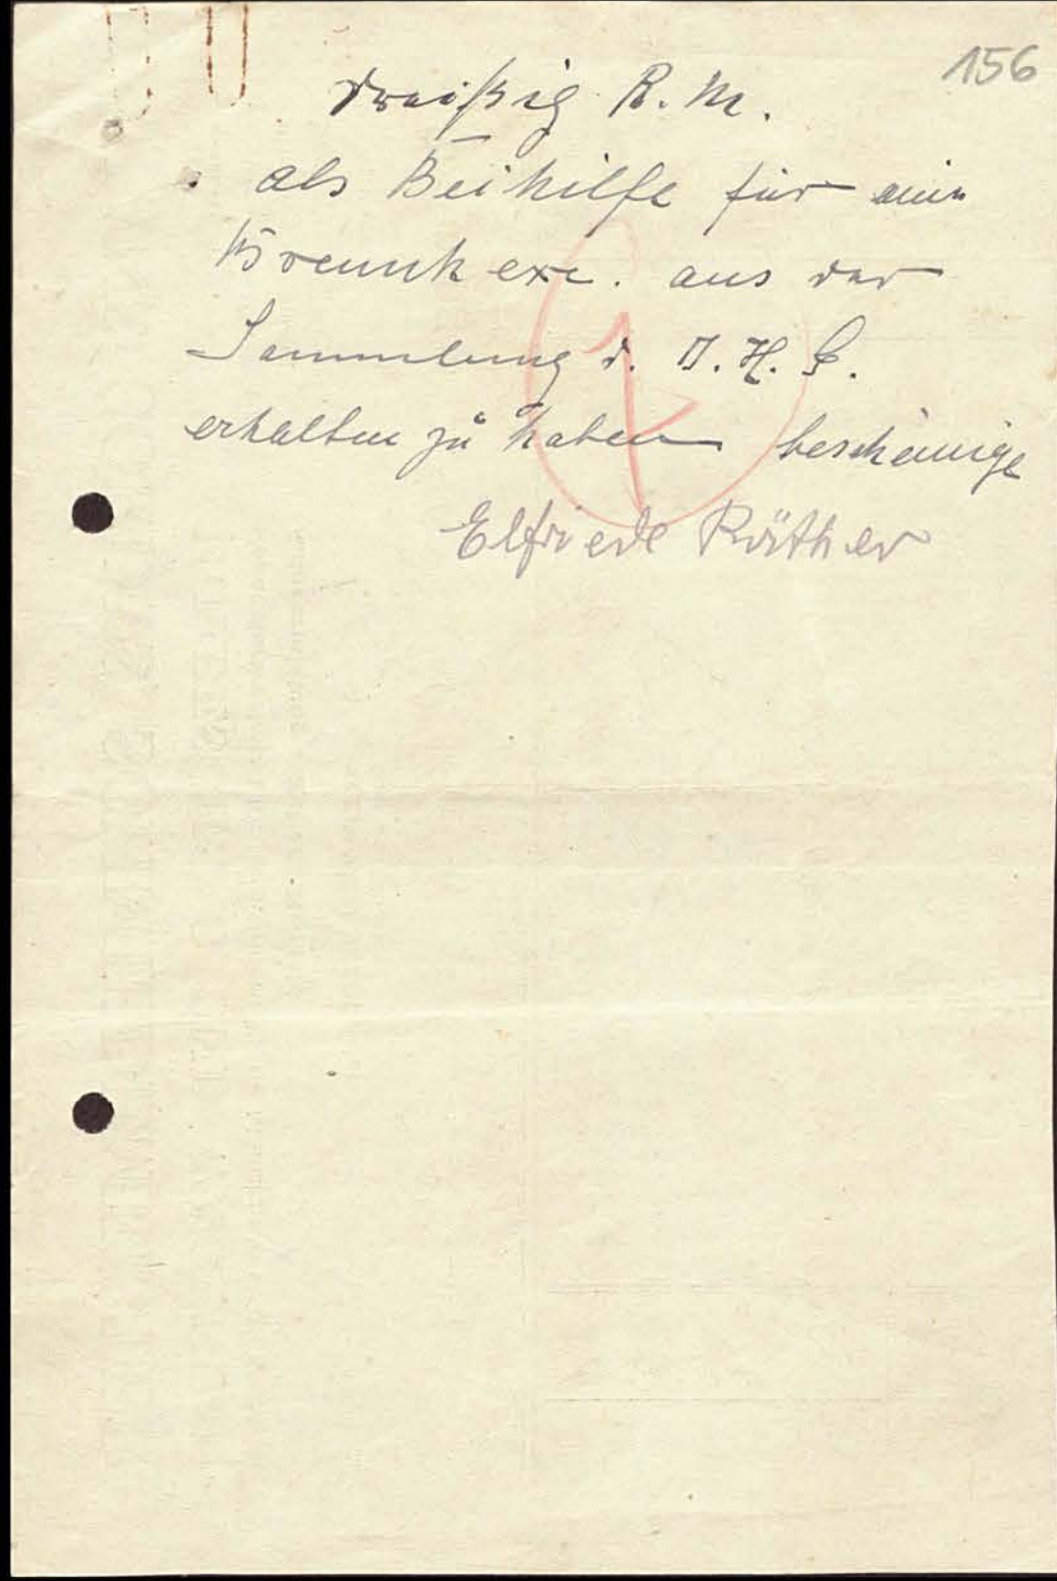 156
dreißig R.M.
als Beihilfe für ein
aus der
Sammlung d. J. H. G.
erhalten zu haben bescheinige
Elfriede Röther